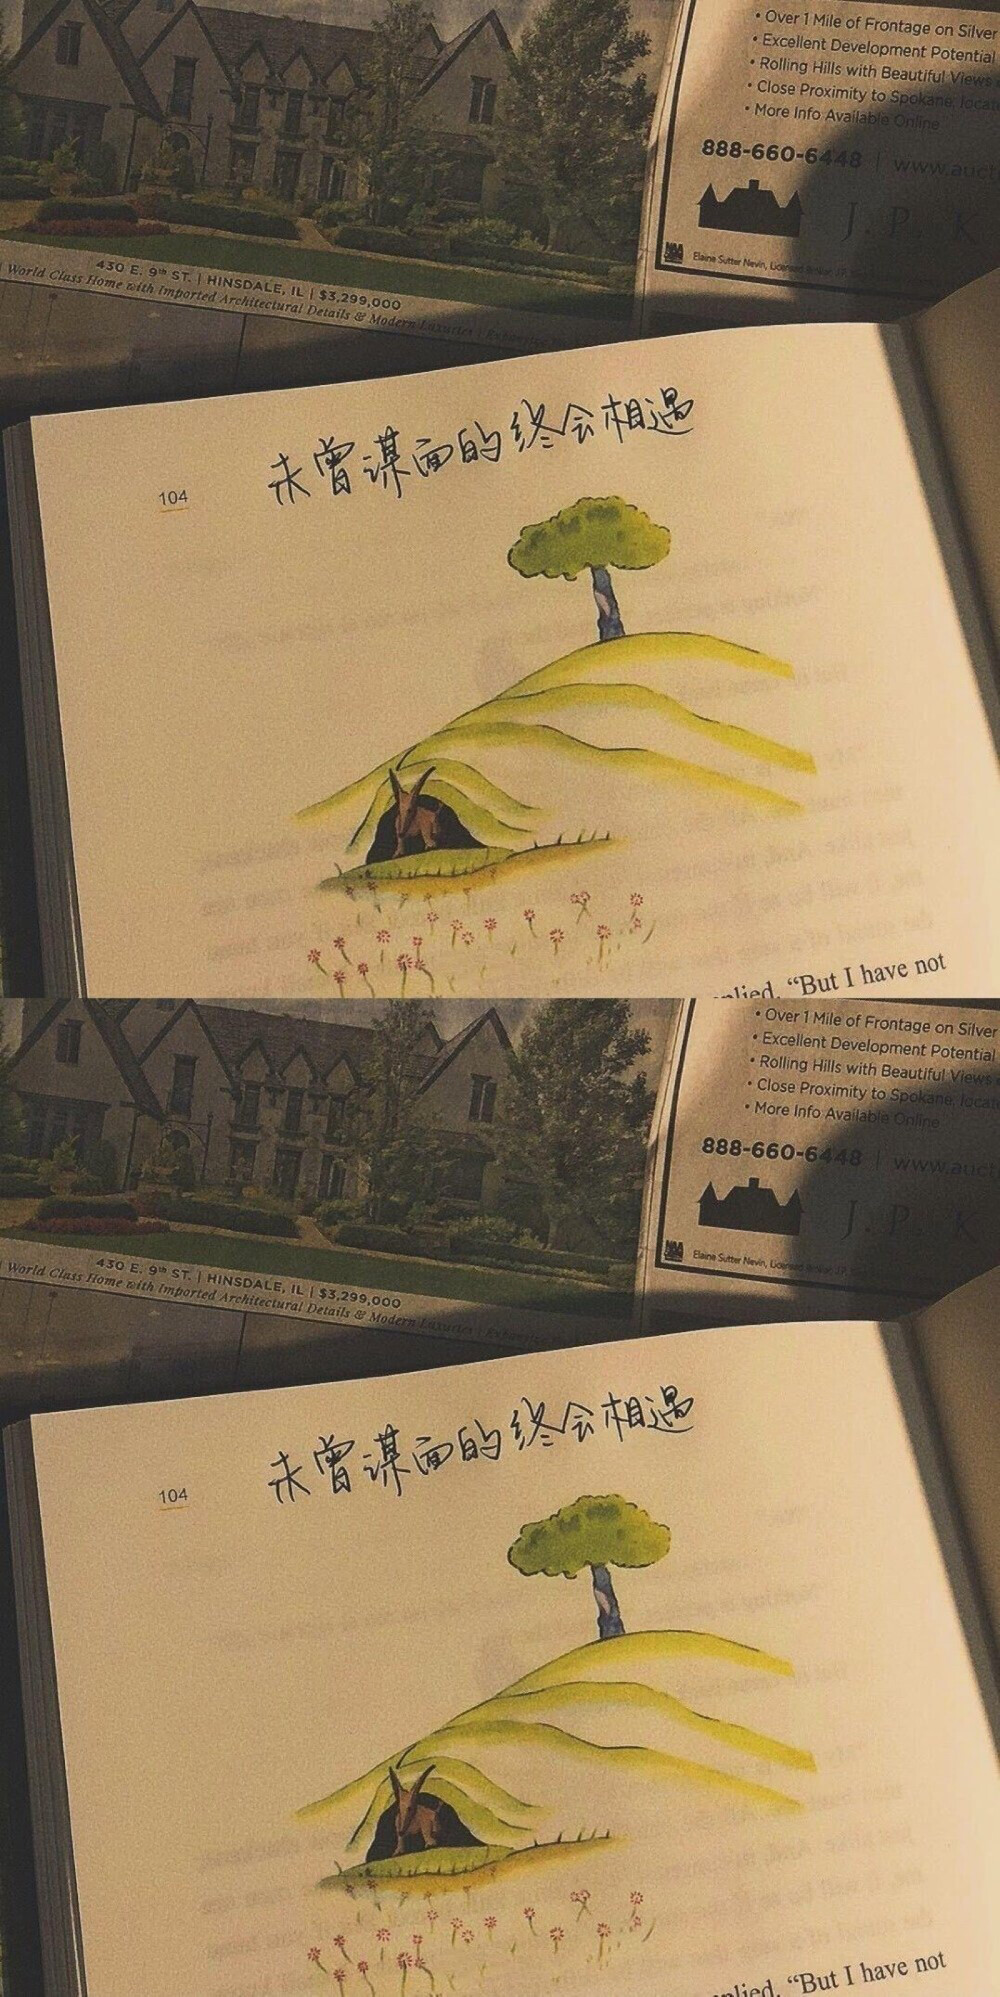 • Over 1 Mile of Frontage on Silver
• Excellent Development Potential
• Rolling Hills with Beautiful Views
• Close Proximity to Spokane, locat
• More Info Available Online
888-660-6448 | www.auct
J. P. K
Elaine Sutter Nevin, Licensed Broker, J.P.
430 E. 9th ST. | HINSDALE, IL | $3,299,000
World Class Home with Imported Architectural Details & Modern Luxuries |
未曾谋面的终会相遇
104
plied. “But I have not
• Over 1 Mile of Frontage on Silver
• Excellent Development Potential
• Rolling Hills with Beautiful Views
• Close Proximity to Spokane, locat
• More Info Available Online
888-660-6448 | www.auct
J. P. K
Elaine Sutter Nevin, Licensed Broker, J.P.
430 E. 9th ST. | HINSDALE, IL | $3,299,000
World Class Home with Imported Architectural Details & Modern Luxuries |
未曾谋面的终会相遇
104
plied. “But I have not